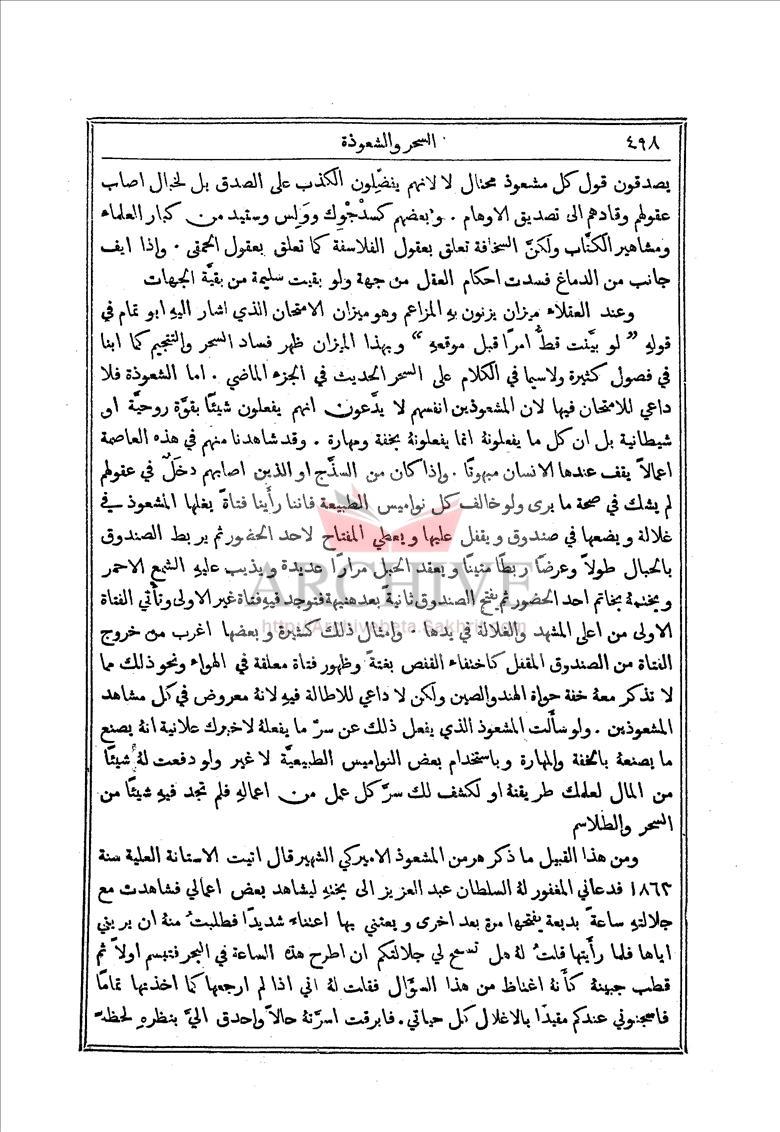 ٤٩٨ السحر والشعوذة
يصدقون قول كل مشعوذ محتال لا لانهم يفضّلون الكذب على الصدق بل لخبال اصاب
عقولهم وقادهم الى تصديق الاوهام . وبعضهم كسدْجوِك ووَلِس وستيد من كبار العلماء
ومشاهير الكتَّاب ولكنَّ السخافة تعلق بعقول الفلاسفة كما تعلق بعقول الحمقى . واذا ايف
جانب من الدماغ فسدت احكام العقل من جهة ولو بقيت سليمة من بقيَّة الجهات
وعند العقلاء ميزان يزنون بهِ المزاعم وهو ميزان الامتحان الذي اشار اليهِ ابو تمام في
قولهِ " لو بيَّنت قطُّ امرًا قبل موقعهِ " وبهذا الميزان ظهر فساد السحر والتنجيم كما ابنا
في فصول كثيرة ولاسيما في الكلام على السحر الحديث في الجزء الماضي . اما الشعوذة فلا
داعي للامتحان فيها لان المشعوذين انفسهم لا يدَّعون انهم يفعلون شيئًا بقوَّة روحيَّة او
شيطانية بل ان كل ما يفعلونهُ انما يفعلونهُ بخفة ومهارة . وقد شاهدنا منهم في هذه العاصمة
اعمالاً يقف عندها الانسان مبهوتًا . واذا كان من السذَّج او الذين اصابهم دخَلٌ في عقولهم
لم يشك في صحة ما يرى ولو خالف كل نواميس الطبيعة فاننا رأَينا فتاةً يغلها المشعوذ في
غلالة ويضعها في صندوق ويقفل عليها ويعطي المفتاح لاحد الحضور ثم يربط الصندوق
بالحبال طولاً وعرضًا ربطًا متينًا ويعقد الحبل مرارًا عديدة ويذيب عليهِ الشمع الاحمر
ويختمهُ بخاتم احد الحضور ثم يفتح الصندوق ثانيةً بعد هنيهة فتوجد فيهِ فتاة غير الاولى وتأتي الفتاة
الاولى من اعلى المشهد والغلالة في يدها . وامثال ذلك كثيرة وبعضها اغرب من خروج
الفتاة من الصندوق المقفل كاختفاء القفص بغتةً وظهور فتاة معلقة في الهواء ونحو ذلك مما
لا تذكر معهُ خفة حواة الهند والصين ولكن لا داعي للاطالة فيهِ لانهُ معروض في كل مشاهد
المشعوذين . ولو سأَلت المشعوذ الذي يفعل ذلك عن سرّ ما يفعلهُ لاخبرك علانية انهُ يصنع
ما يصنعهُ بالخفة والمهارة وباستخدام بعض النواميس الطبيعيَّة لا غير ولو دفعت لهُ شيئًا
من المال لعلمك طريقتهُ او لكشف لك سرّ كل عمل من اعمالهِ فلم تجد فيهِ شيئًا من
السحر والطلاسم
ومن هذا القبيل ما ذكر هرمن المشعوذ الاميركي الشهير قال اتيت الاستانة العلية سنة
١٨٦٢ فدعاني المغفور لهُ السلطان عبد العزيز الى يختهِ ليشاهد بعض اعمالي فشاهدت مع
جلالتهِ ساعةً بديعة يفتحها مرة بعد اخرى ويعتني بها اعتناء شديدًا فطلبتُ منهُ ان يريني
اياها فلما رأَيتها قلتُ لهُ هل تسمح لي جلالتكم ان اطرح هذه الساعة في البحر فتبسم اولاً ثم
قطب جبينهُ كأَنهُ اغتاظ من هذا السؤَال فقلت لهُ اني اذا لم ارجعها كما اخذتها تمامًا
فاسجنوني عندكم مقيدًا بالاغلال كل حياتي . فابرقت اسرَّتهُ حالاً واحدق اليَّ بنظرهِ لحظةً
ARCHIVE
http://Archivebeta.Sakhrit.com